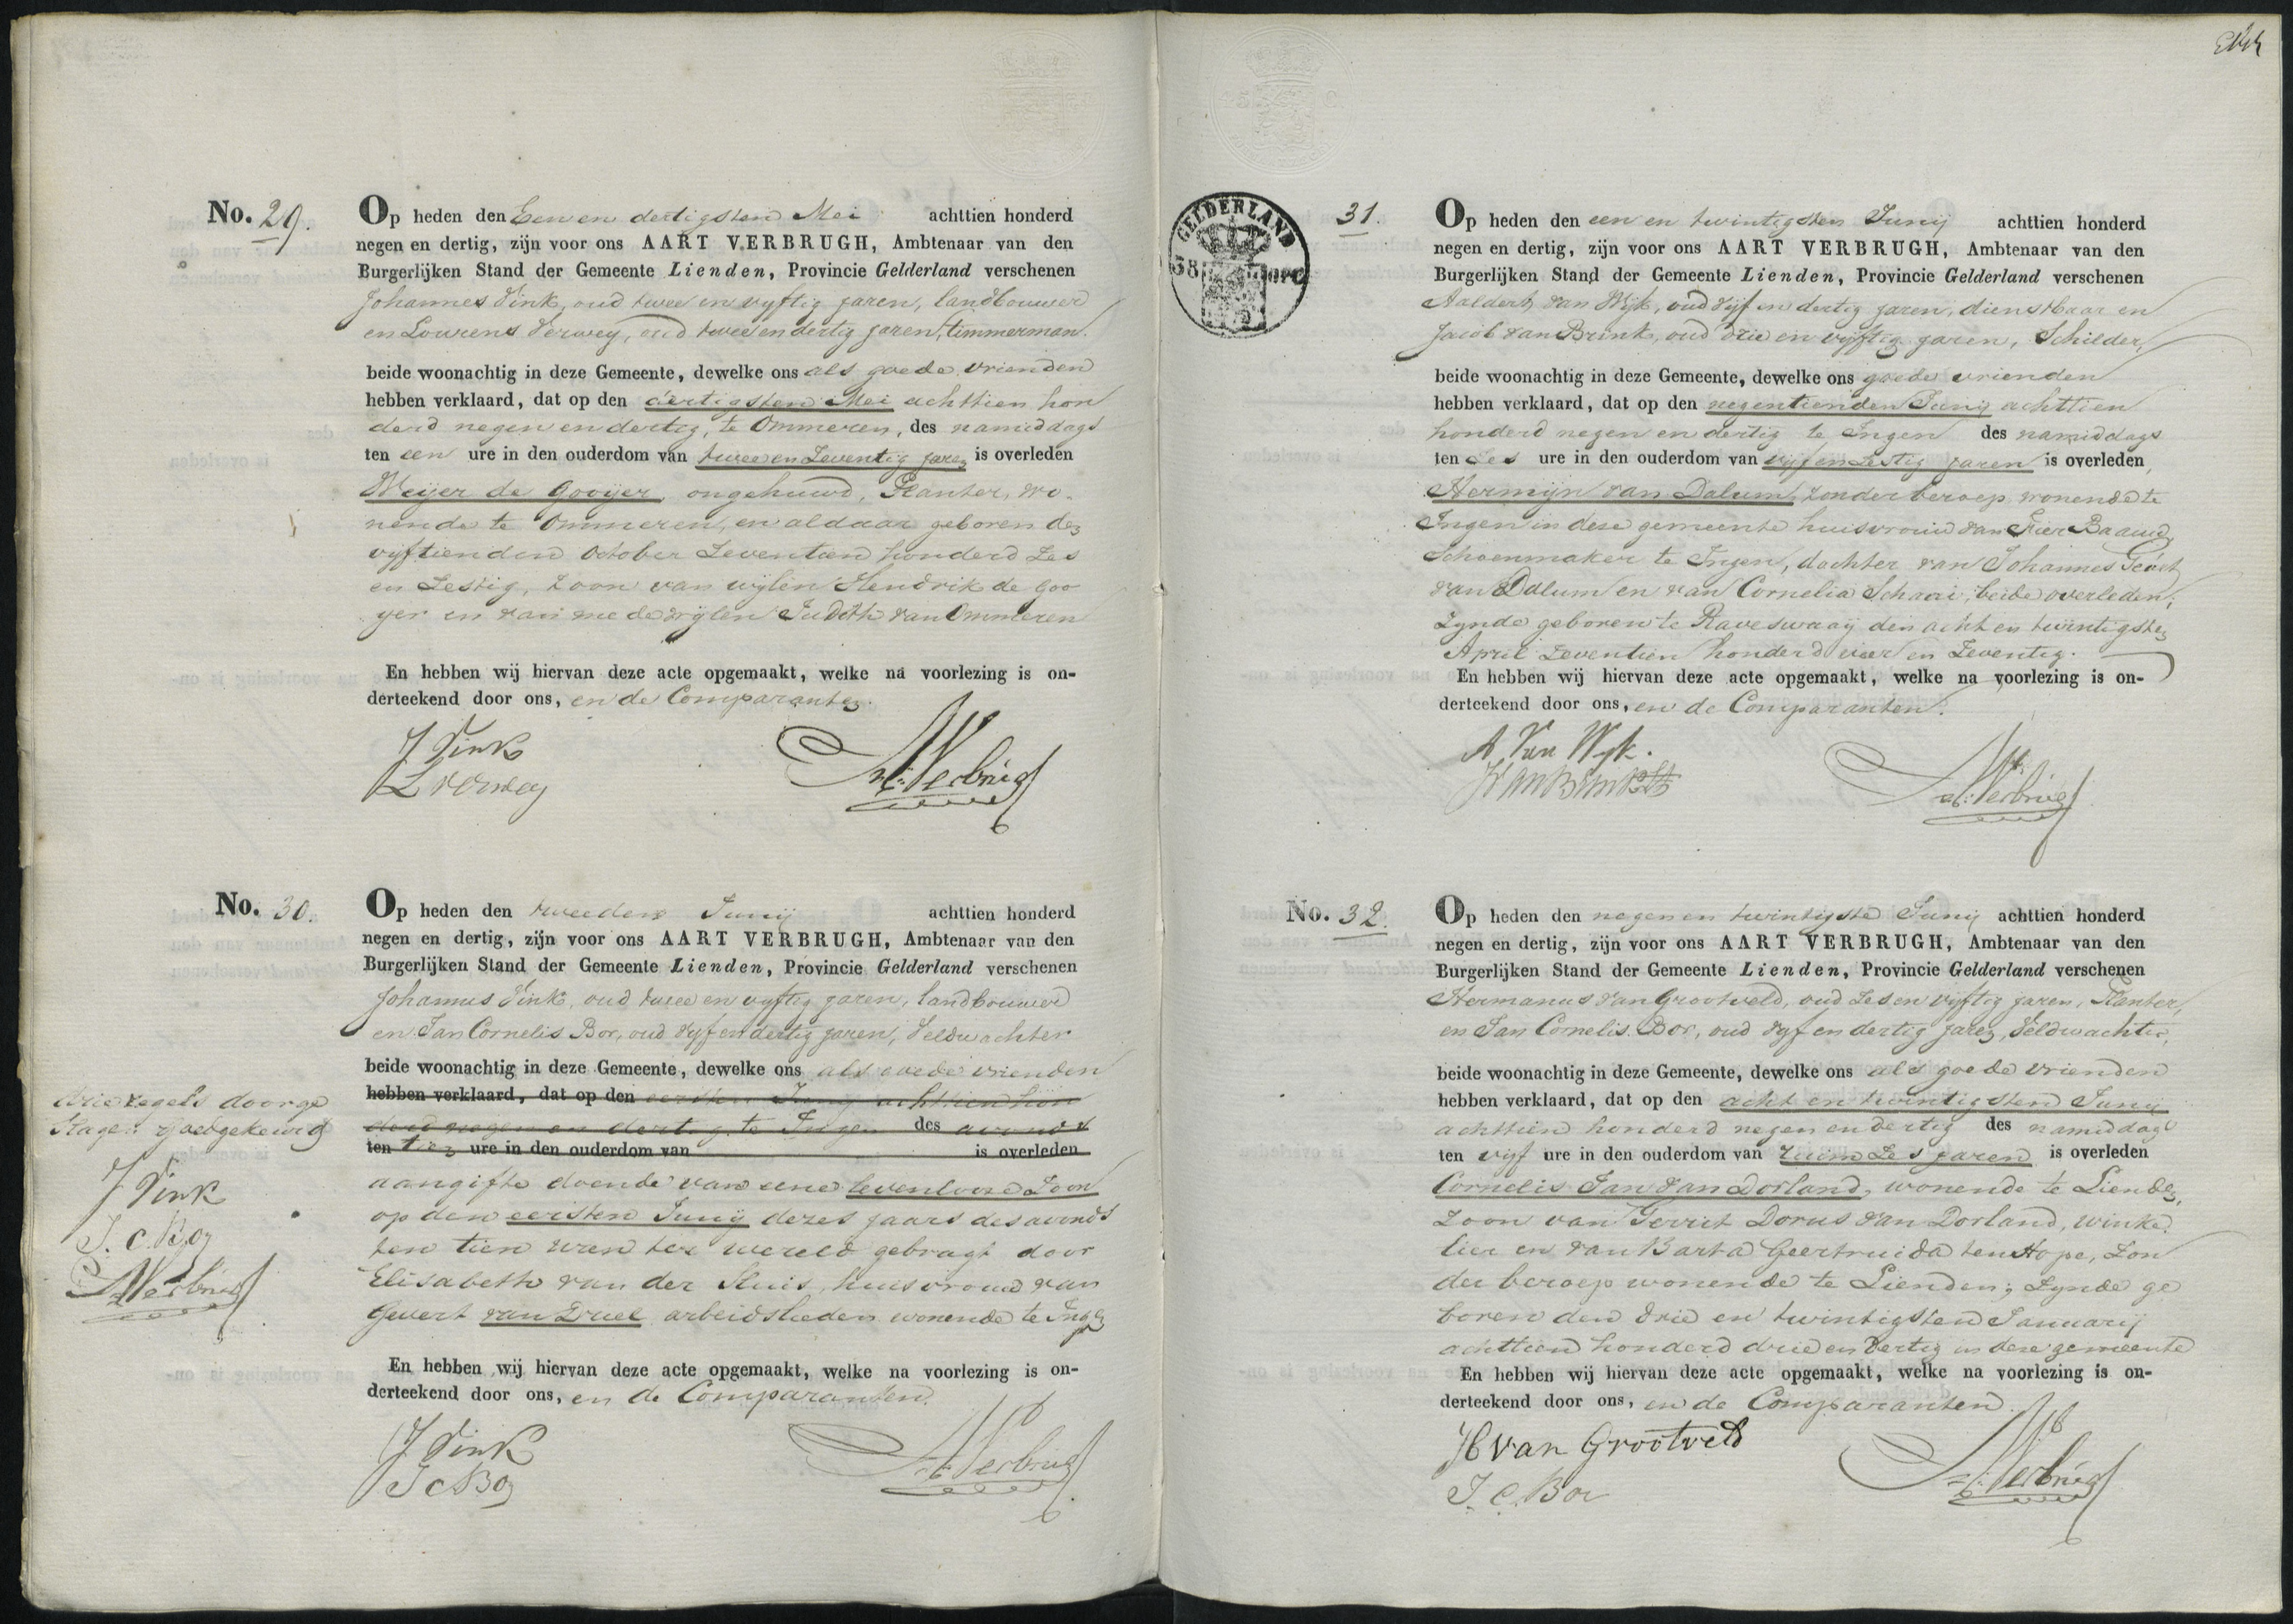 No. 29.
Op heden den Een en dertigsten Mei achttien honderd
negen en dertig, zijn voor ons AART VERBRUGH, Ambtenaar van den
Burgerlijken Stand der Gemeente Lienden, Provincie Gelderland verschenen
Johannes Vink, oud twee en vyftig jaren, landbouwer
en Lourens Verwey, oud twee en dertig jaren, timmerman.
beide woonachtig in deze Gemeente, dewelke ons als goede vrienden
hebben verklaard, dat op den dertigsten Mei achttien hon
derd negen en dertig, te Ommeren, des namiddags
ten een ure in den ouderdom van twee en Zeventig jaren is overleden
Weijer de Gooijer, ongehuwd, Planter, wo-
nende te Ommeren, en aldaar geboren den
vijftienden October Zeventien honderd Zes
en Zestig, Zoon van wijlen Hendrik de Goo
yer en van mede wijlen Judith van Ommeren
En hebben wij hiervan deze acte opgemaakt, welke na voorlezing is on-
derteekend door ons, en de Comparanten.
J Vink
L Verwey
A. Verbrug
No. 30.
Op heden den tweeden Junij achttien honderd
negen en dertig, zijn voor ons AART VERBRUGH, Ambtenaar van den
Burgerlijken Stand der Gemeente Lienden, Provincie Gelderland verschenen
Johannes Vink, oud twee en vyftig jaren, landbouwer
en Jan Cornelis Bor, oud vyf en dertig jaren, Veldwachter
beide woonachtig in deze Gemeente, dewelke ons als goede vrienden
hebben verklaard, dat op den eersten Junij achttien hon
derd negen en dertig te Ingen des avonds
ten tien ure in den ouderdom van is overleden
aangifte doende van eene levenlooze Zoon
op den eersten Junij dezes jaars des avonds
ten tien uren ter wereld gebragt door
Elisabeth van der Sluis, huisvrouw van
Gevert van Druel arbeidslieden wonende te Ingen
En hebben wij hiervan deze acte opgemaakt, welke na voorlezing is on-
derteekend door ons, en de Comparanten.
J Vink
J C Bor
A. Verbrug
drie regels doorge
slagen goedgekeurd
J Vink
J. C. Bor
A Verbrug
GELDERLAND
31.
Op heden den een en twintigsten Junij achttien honderd
negen en dertig, zijn voor ons AART VERBRUGH, Ambtenaar van den
Burgerlijken Stand der Gemeente Lienden, Provincie Gelderland verschenen
Aaldert van Wijk, oud vijf en dertig jaren, dienstbaar en
Jacob van Brink, oud drie en vijftig jaren, Schilder,
beide woonachtig in deze Gemeente, dewelke ons goede vrienden
hebben verklaard, dat op den negentienden Junij achttien
honderd negen en dertig te Ingen des namiddags
ten Zes ure in den ouderdom van vijf en Zestig jaren is overleden,
Hermijn van Dalum, zonder beroep wonende te
Ingen in deze gemeente huisvrouw van
Schoenmaker te Ingen, dochter van Johannes
van Dalum en van Cornelia Schaai, beide overleden;
Zynde geboren te Raveswaaij den acht en twintigsten
April Zeventien honderd vier en Zeventig.
En hebben wij hiervan deze acte opgemaakt, welke na voorlezing is on-
derteekend door ons, en de Comparanten.
A. Van Wyk.
J van Brink
A. Verbrug
No. 32.
Op heden den negen en twintigste Junij achttien honderd
negen en dertig, zijn voor ons AART VERBRUGH, Ambtenaar van den
Burgerlijken Stand der Gemeente Lienden, Provincie Gelderland verschenen
Hermanus van Grootveld, oud Zes en vijftig jaren, Planter,
en Jan Cornelis Bor, oud vyf en dertig jaren, Veldwachter,
beide woonachtig in deze Gemeente, dewelke ons als goede vrienden
hebben verklaard, dat op den acht en twintigsten Junij
achttien honderd negen en dertig des namiddags
ten vijf ure in den ouderdom van ruim Zes jaren is overleden
Cornelis Jan van Dorland, wonende te Lienden,
Zoon van Gerrit Dorus van Dorland, winke
lier en van Barta Geertruida ten Hope, Zon
der beroep wonende te Lienden; Zynde ge
boren den drie en twintigsten Januarij
achttien honderd drie en dertig in deze gemeente
En hebben wij hiervan deze acte opgemaakt, welke na voorlezing is on-
derteekend door ons, en de Comparanten.
H van Grootveld
J. C. Bor
A. Verbrug